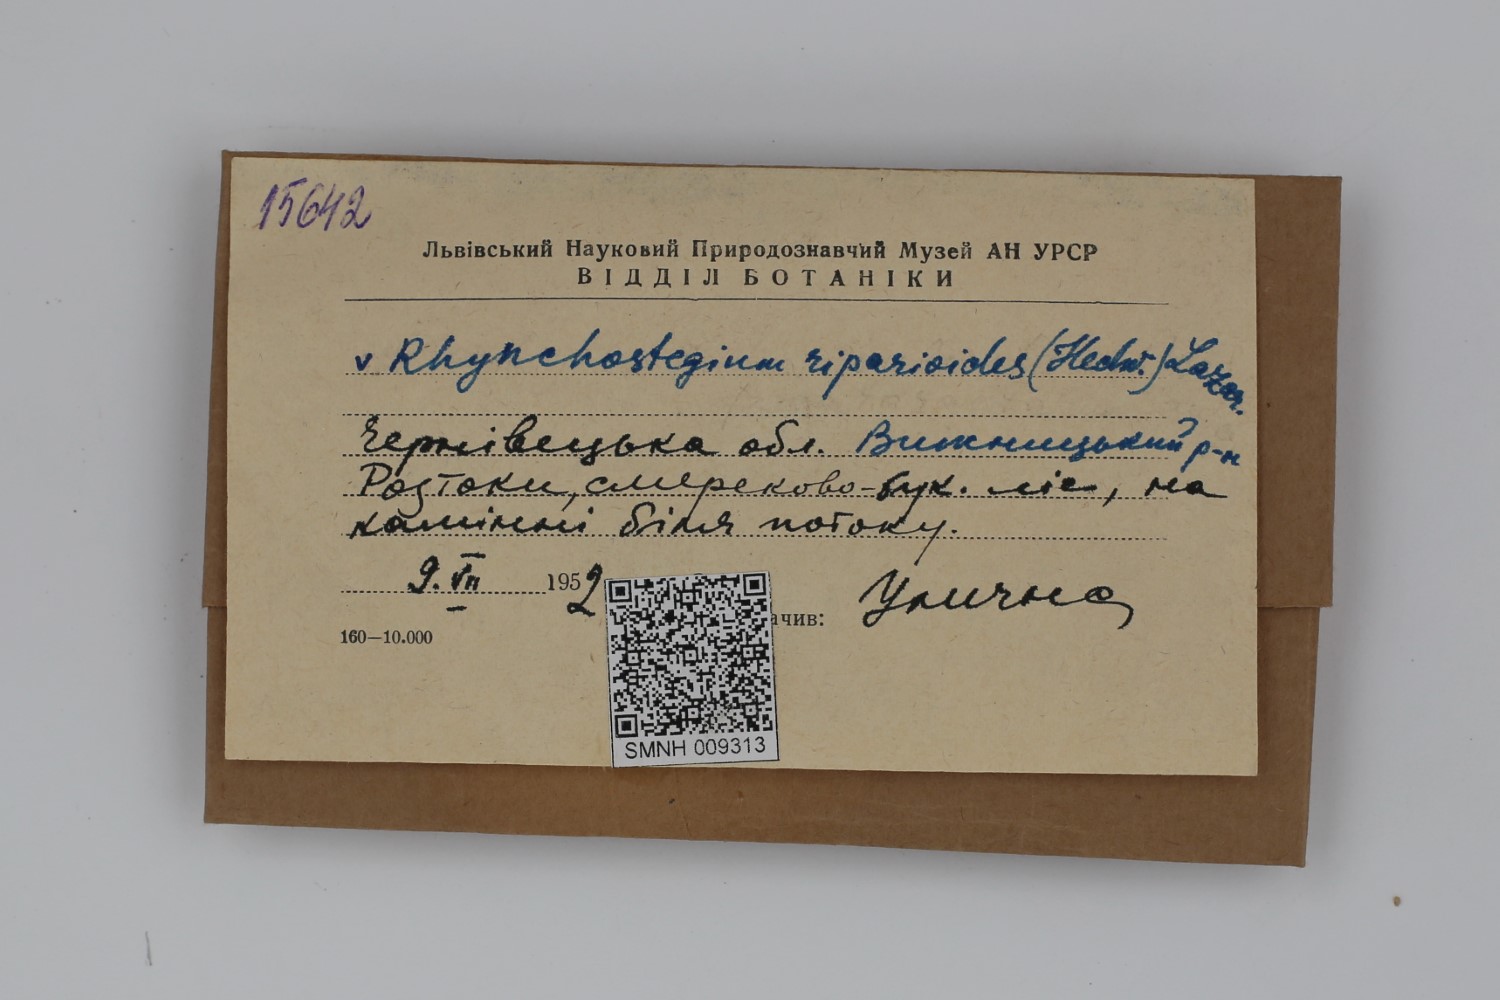 15642
Львівський Науковий Природознавчий Музей АН УРСР
ВІДДІЛ БОТАНІКИ
v Rhynchostegium riparioides (Hedw.) Lazar.
Чернівецька обл. Вижницький р-н
Розтоки, смереково-бук. ліс, на
камінні біля потоку.
9. VII 1952
ачив: Улична
160—10.000
SMNH 009313